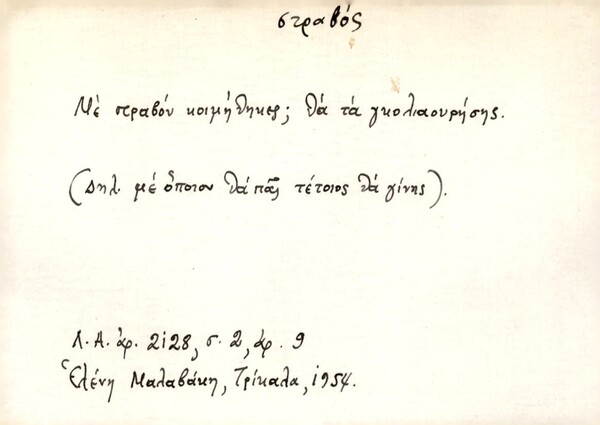 στραβός
Μὲ στραβόν κοιμήθηκες; θά τά γκολιαουρήσης.
(Δηλ. μέ ὅποιον θά πᾶς τέτοιος θά γίνης).
Λ.Α. ἀρ. 2128, σ. 2, ἀρ. 9
Ἑλένη Μαλαβάκη, Τρίκαλα, 1954.